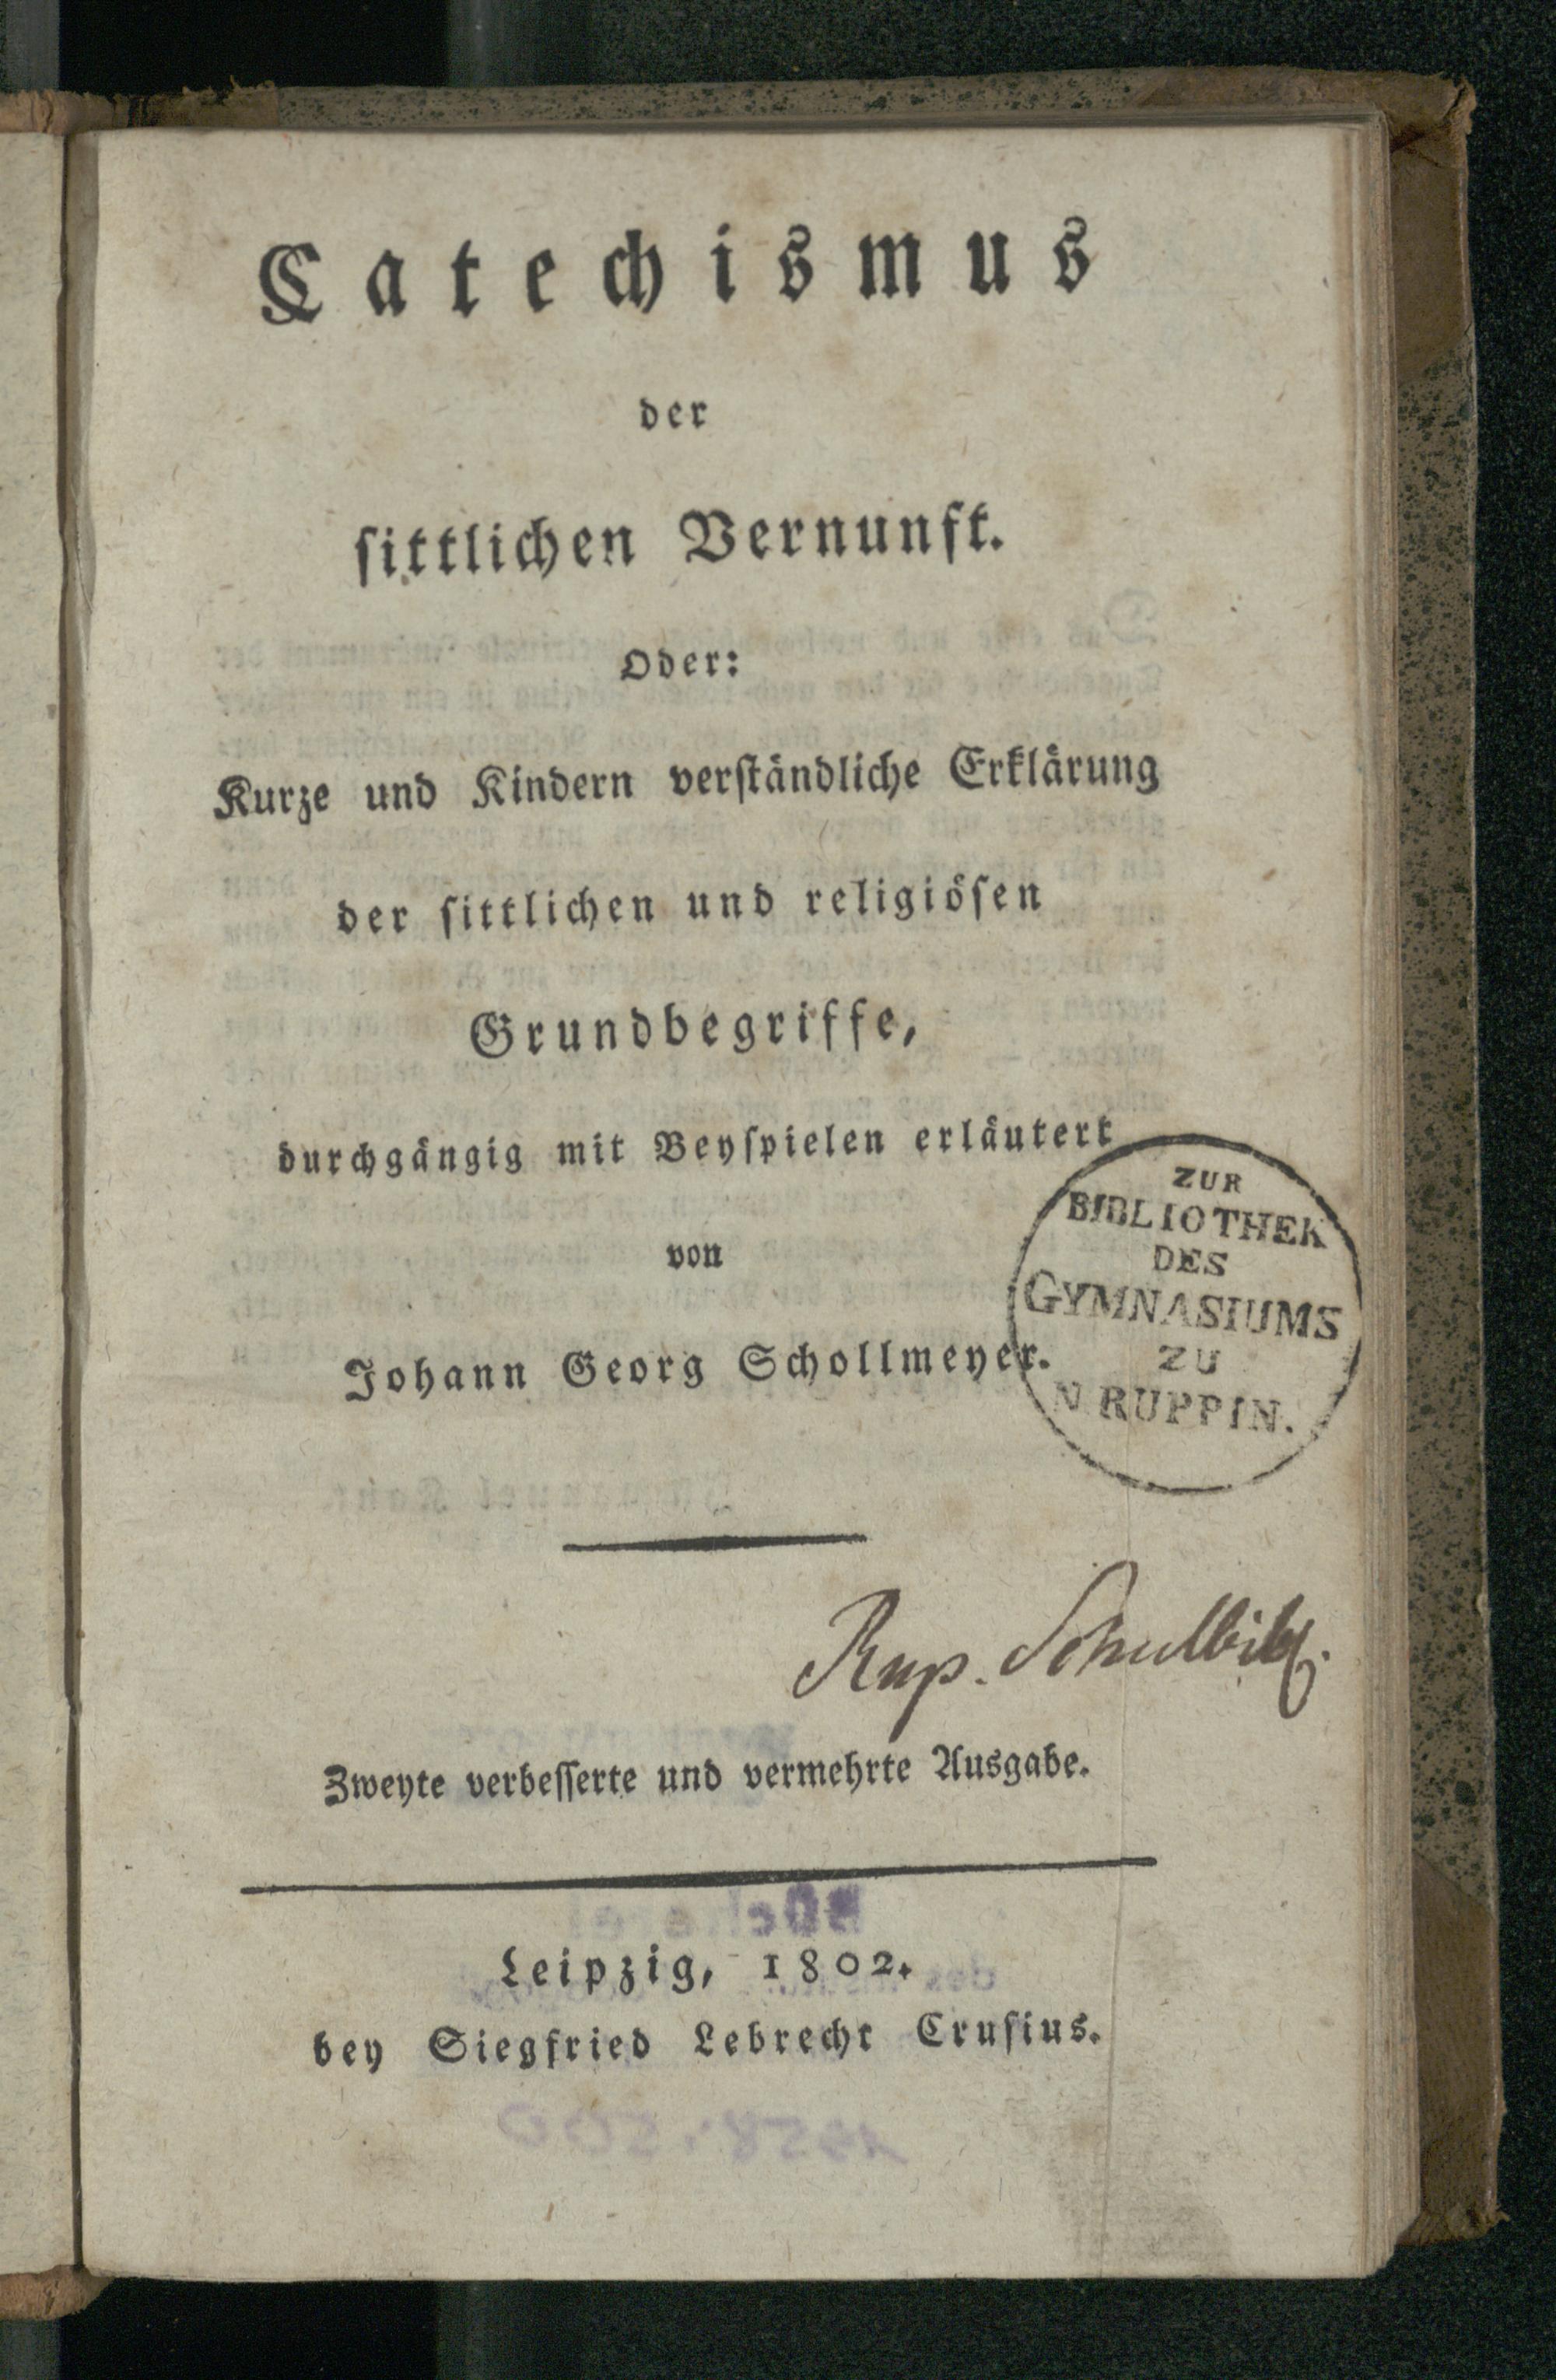 Catechismus
der
sittlichen Vernunft.
Oder:
Kurze und Kindern verständliche Erklärung
der sittlichen und religiösen
Grundbegriffe,
durchgängig mit Beyspielen erläutert
von
Johann Georg Schollmeyer.
ZUR
BIBLIOTHEK
DES
GYMNASIUMS
ZU
N. RUPPIN.
Rup. Schulbibl.
Zweyte verbesserte und vermehrte Ausgabe.
Leipzig, 1802.
bey Siegfried Lebrecht Crusius.